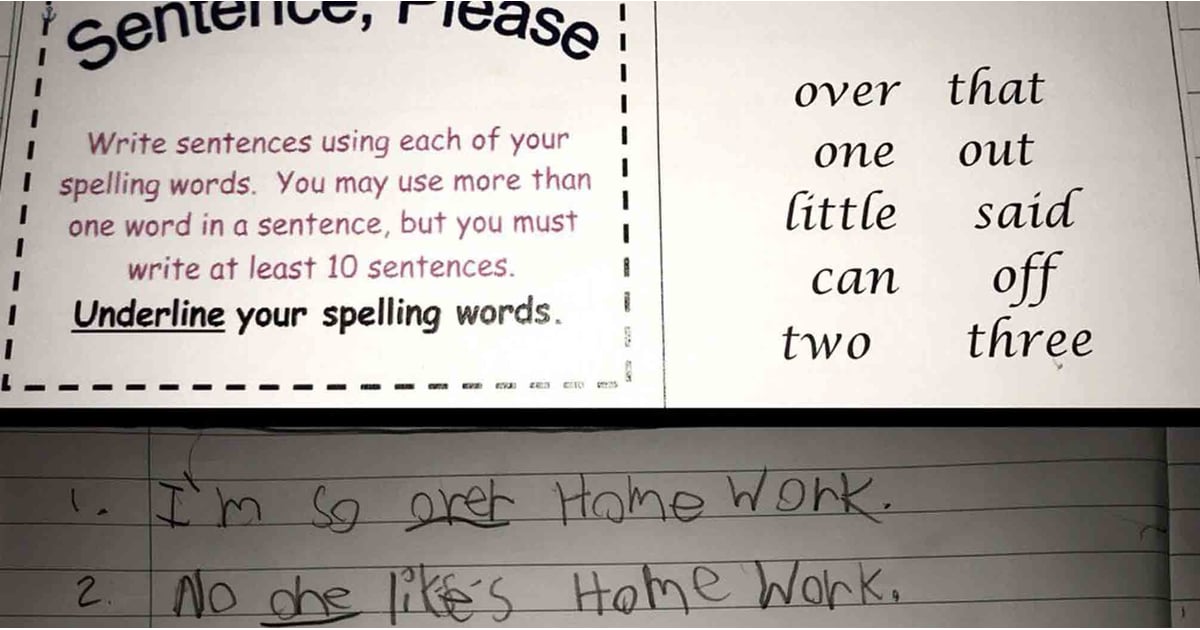 Sentence, Please
Write sentences using each of your
spelling words. You may use more than
one word in a sentence, but you must
write at least 10 sentences.
Underline your spelling words.
over that
one out
little said
can off
two three
1. I'm so over Home Work.
2. No one likes Home Work.